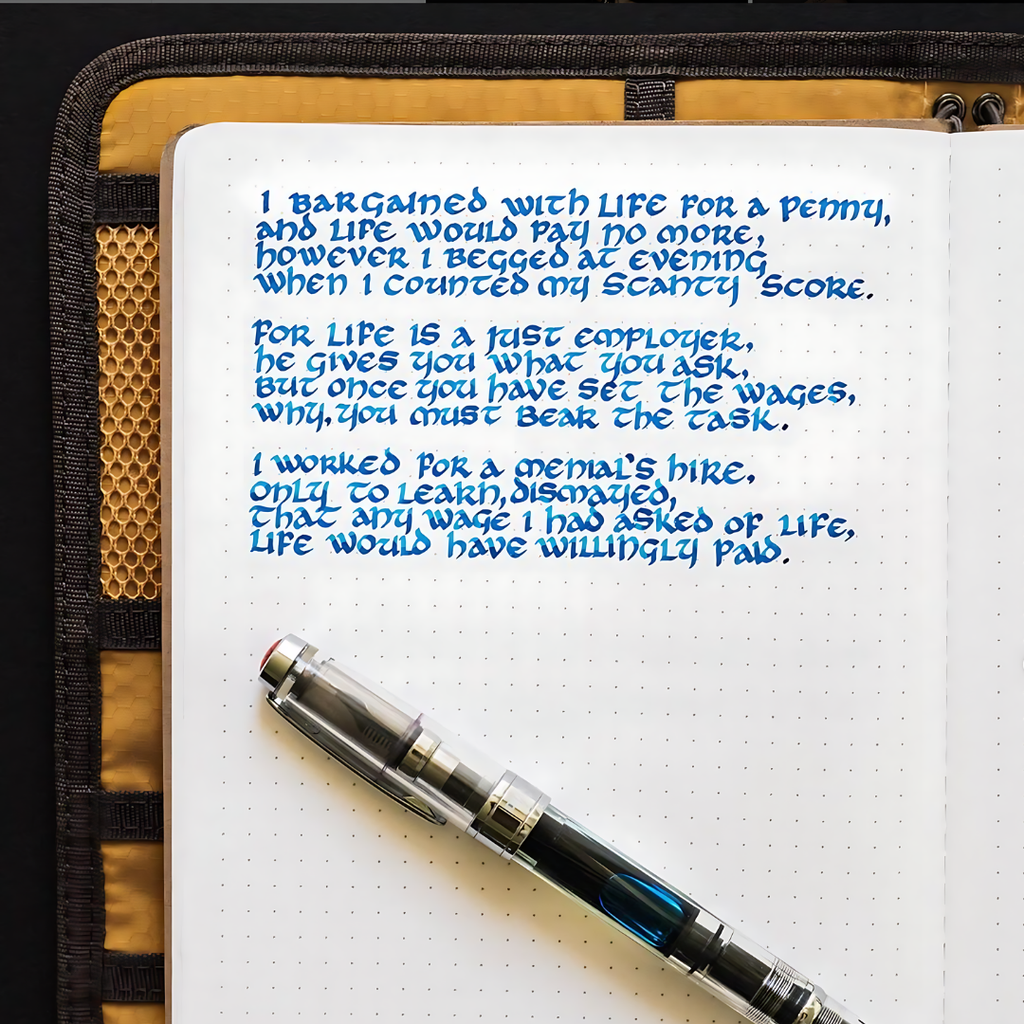 I BARGAINED WITH LIFE FOR A PENNY,
AND LIFE WOULD PAY NO MORE,
HOWEVER I BEGGED AT EVENING
WHEN I COUNTED MY SCANTY SCORE.
FOR LIFE IS A JUST EMPLOYER,
HE GIVES YOU WHAT YOU ASK,
BUT ONCE YOU HAVE SET THE WAGES,
WHY, YOU MUST BEAR THE TASK.
I WORKED FOR A MENIAL'S HIRE,
ONLY TO LEARN, DISMAYED,
THAT ANY WAGE I HAD ASKED OF LIFE,
LIFE WOULD HAVE WILLINGLY PAID.